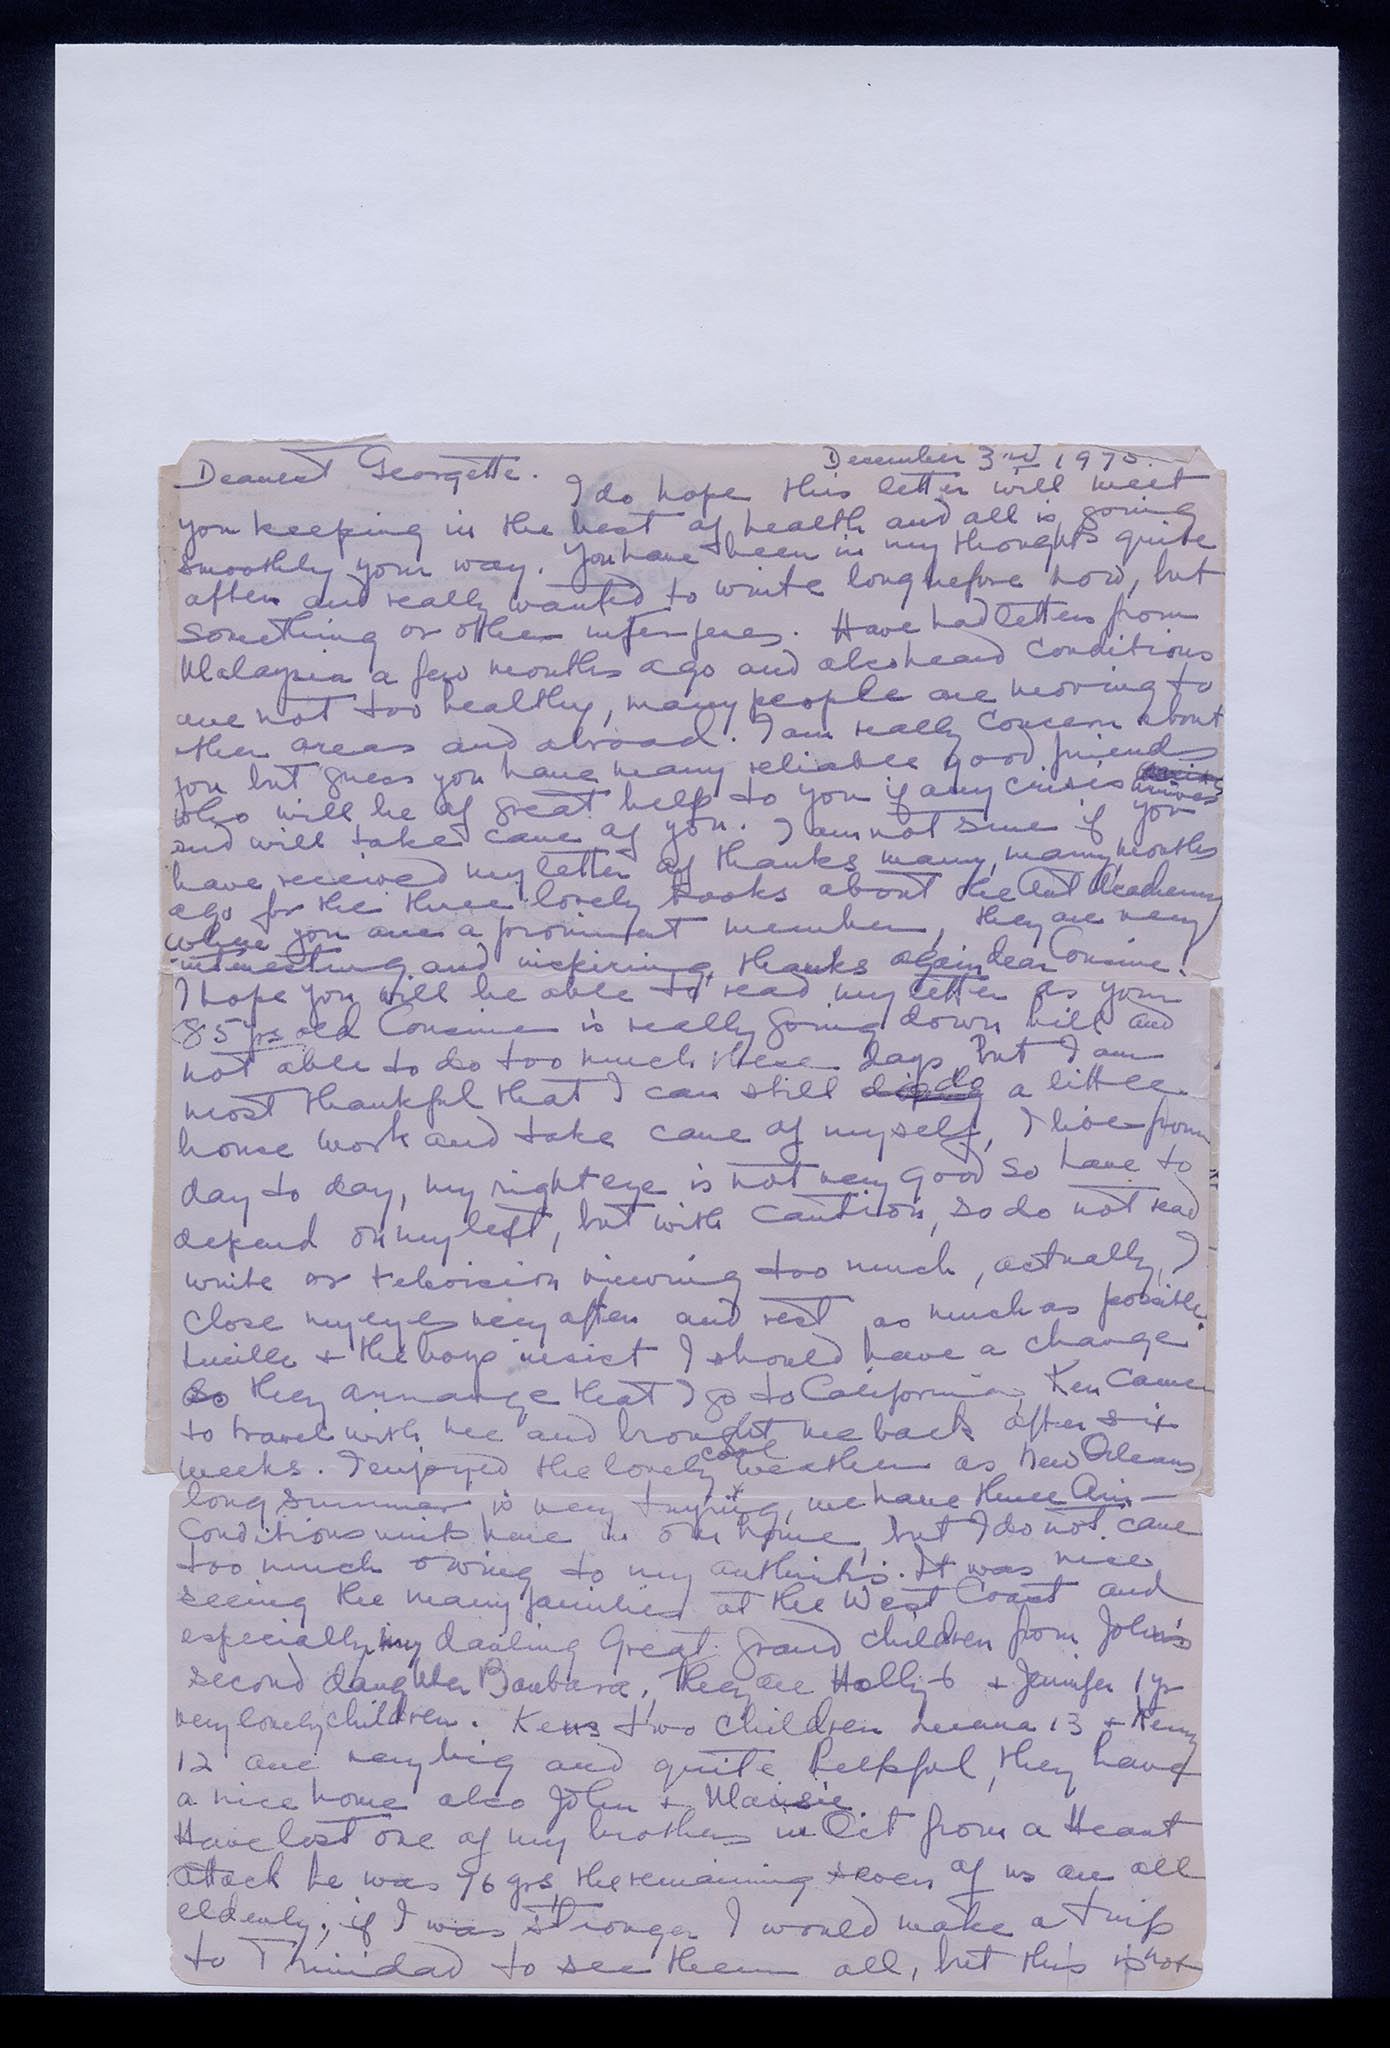 December 3rd 1975.
Dearest Georgette. I do hope this letter will meet
you keeping in the best of health and all is going
smoothly your way. You have been in my thoughts quite
often and really wanted to write long before now, but
something or other interferes. Have had letters from
Malaysia a few months ago and also heard conditions
are not too healthy, many people are moving to
other areas and abroad. I am really concern about
you but guess you have many reliable good friends
who will be of great help to you if any crisis arrives
and will take care of you. I am not sure if you
have received my letter of thanks many, many, months
ago for the three lovely books about the Art Academy
where you are a prominent member, they are very
interesting and inspiring, thanks again dear Cousine.
I hope you will be able to read my letter as your
85 yrs old Cousine is really going down hill and
not able to do too much these days but I am
most thankful that I can still do a little
house work and take care of myself, I live from
day to day, my right eye is not very good so have to
depend on my left, but with caution, so do not read
write or television viewing too much, actually, I
close my eyes very often and rest as much as possible.
Lucille & the boys insist I should have a change
so they arrange that I go to California, Ken came
to travel with me and brought me back after six
weeks. I enjoyed the lovely cool weather as New Orleans
long summer is very trying, we have three Air-
Conditions units here in our home, but I do not care
too much owing to my arthritis. It was nice
seeing the many families at the West Coast and
especially my darling Great grand children from John's
second daughter Barbara, they are Holly 6 & Jennifer 1 yr
very lovely children. Kens two children 13 & Kenny
12 are very big and quite helpful, they have
a nice home also John & Maisie
Have lost one of my brothers in Oct from a Heart
attack he was 76 yrs the remaining seven of us are all
elderly, if I was stronger I would make a trip
to Trinidad to see them all, but this is not